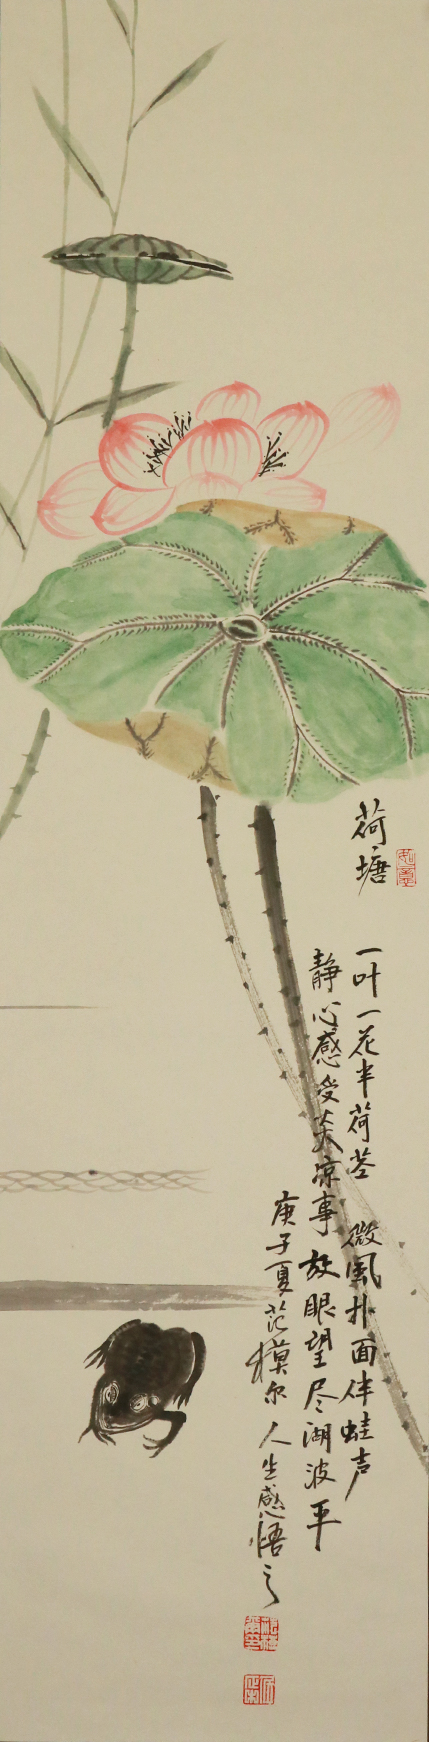 荷塘
一叶一花半荷茎 微風扑面伴蛙声
静心感受炎凉事 放眼望尽湖波平
庚子夏范模尔人生感悟之